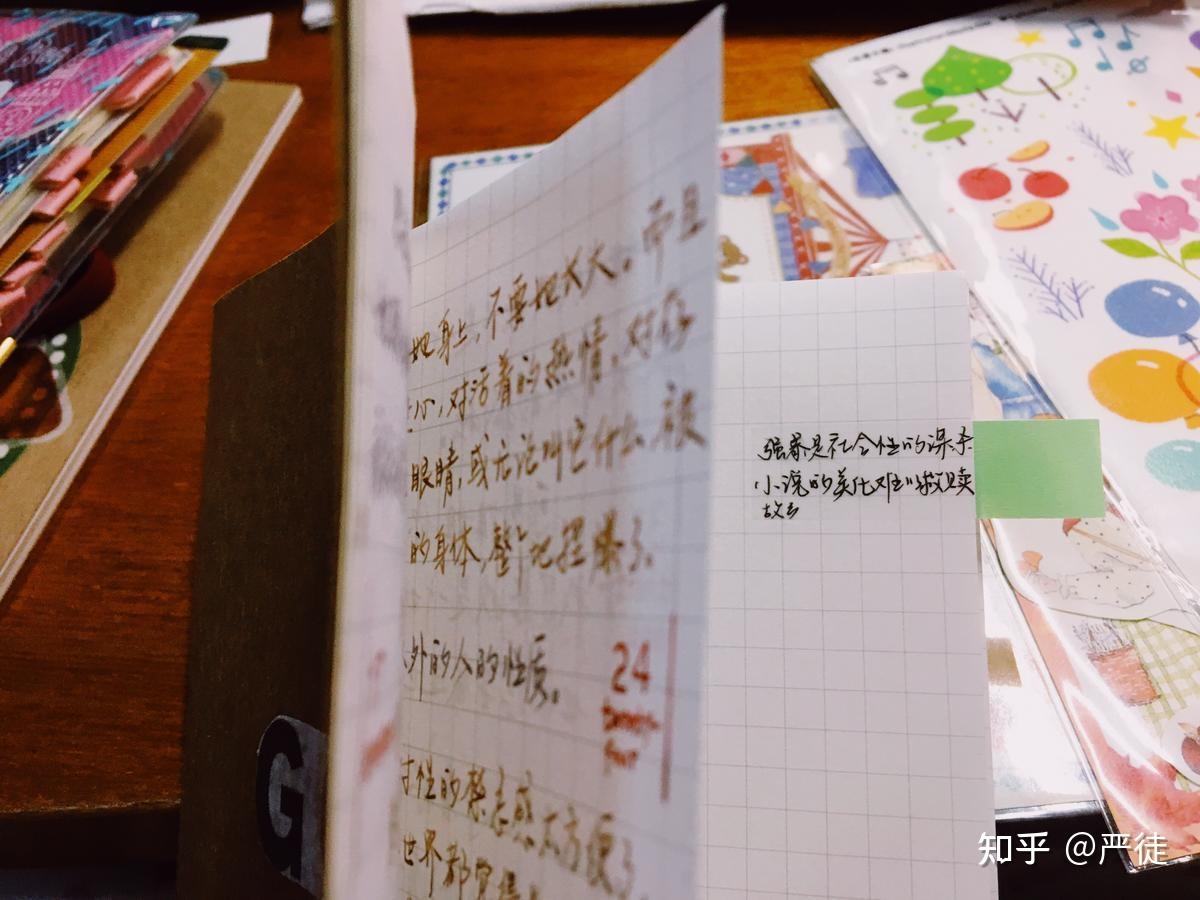 她身上,不要她太大。而且
心,对活着的热情,对存
眼睛,或无论叫它什么,被
的身体,整个地捏爆了。
外的人的性质。
24
Twenty-
four
性的禁忌感太方便了
世界都觉得
强暴是社会性的谋杀
小说的美化难以救赎
故去
G
知乎 @严徒